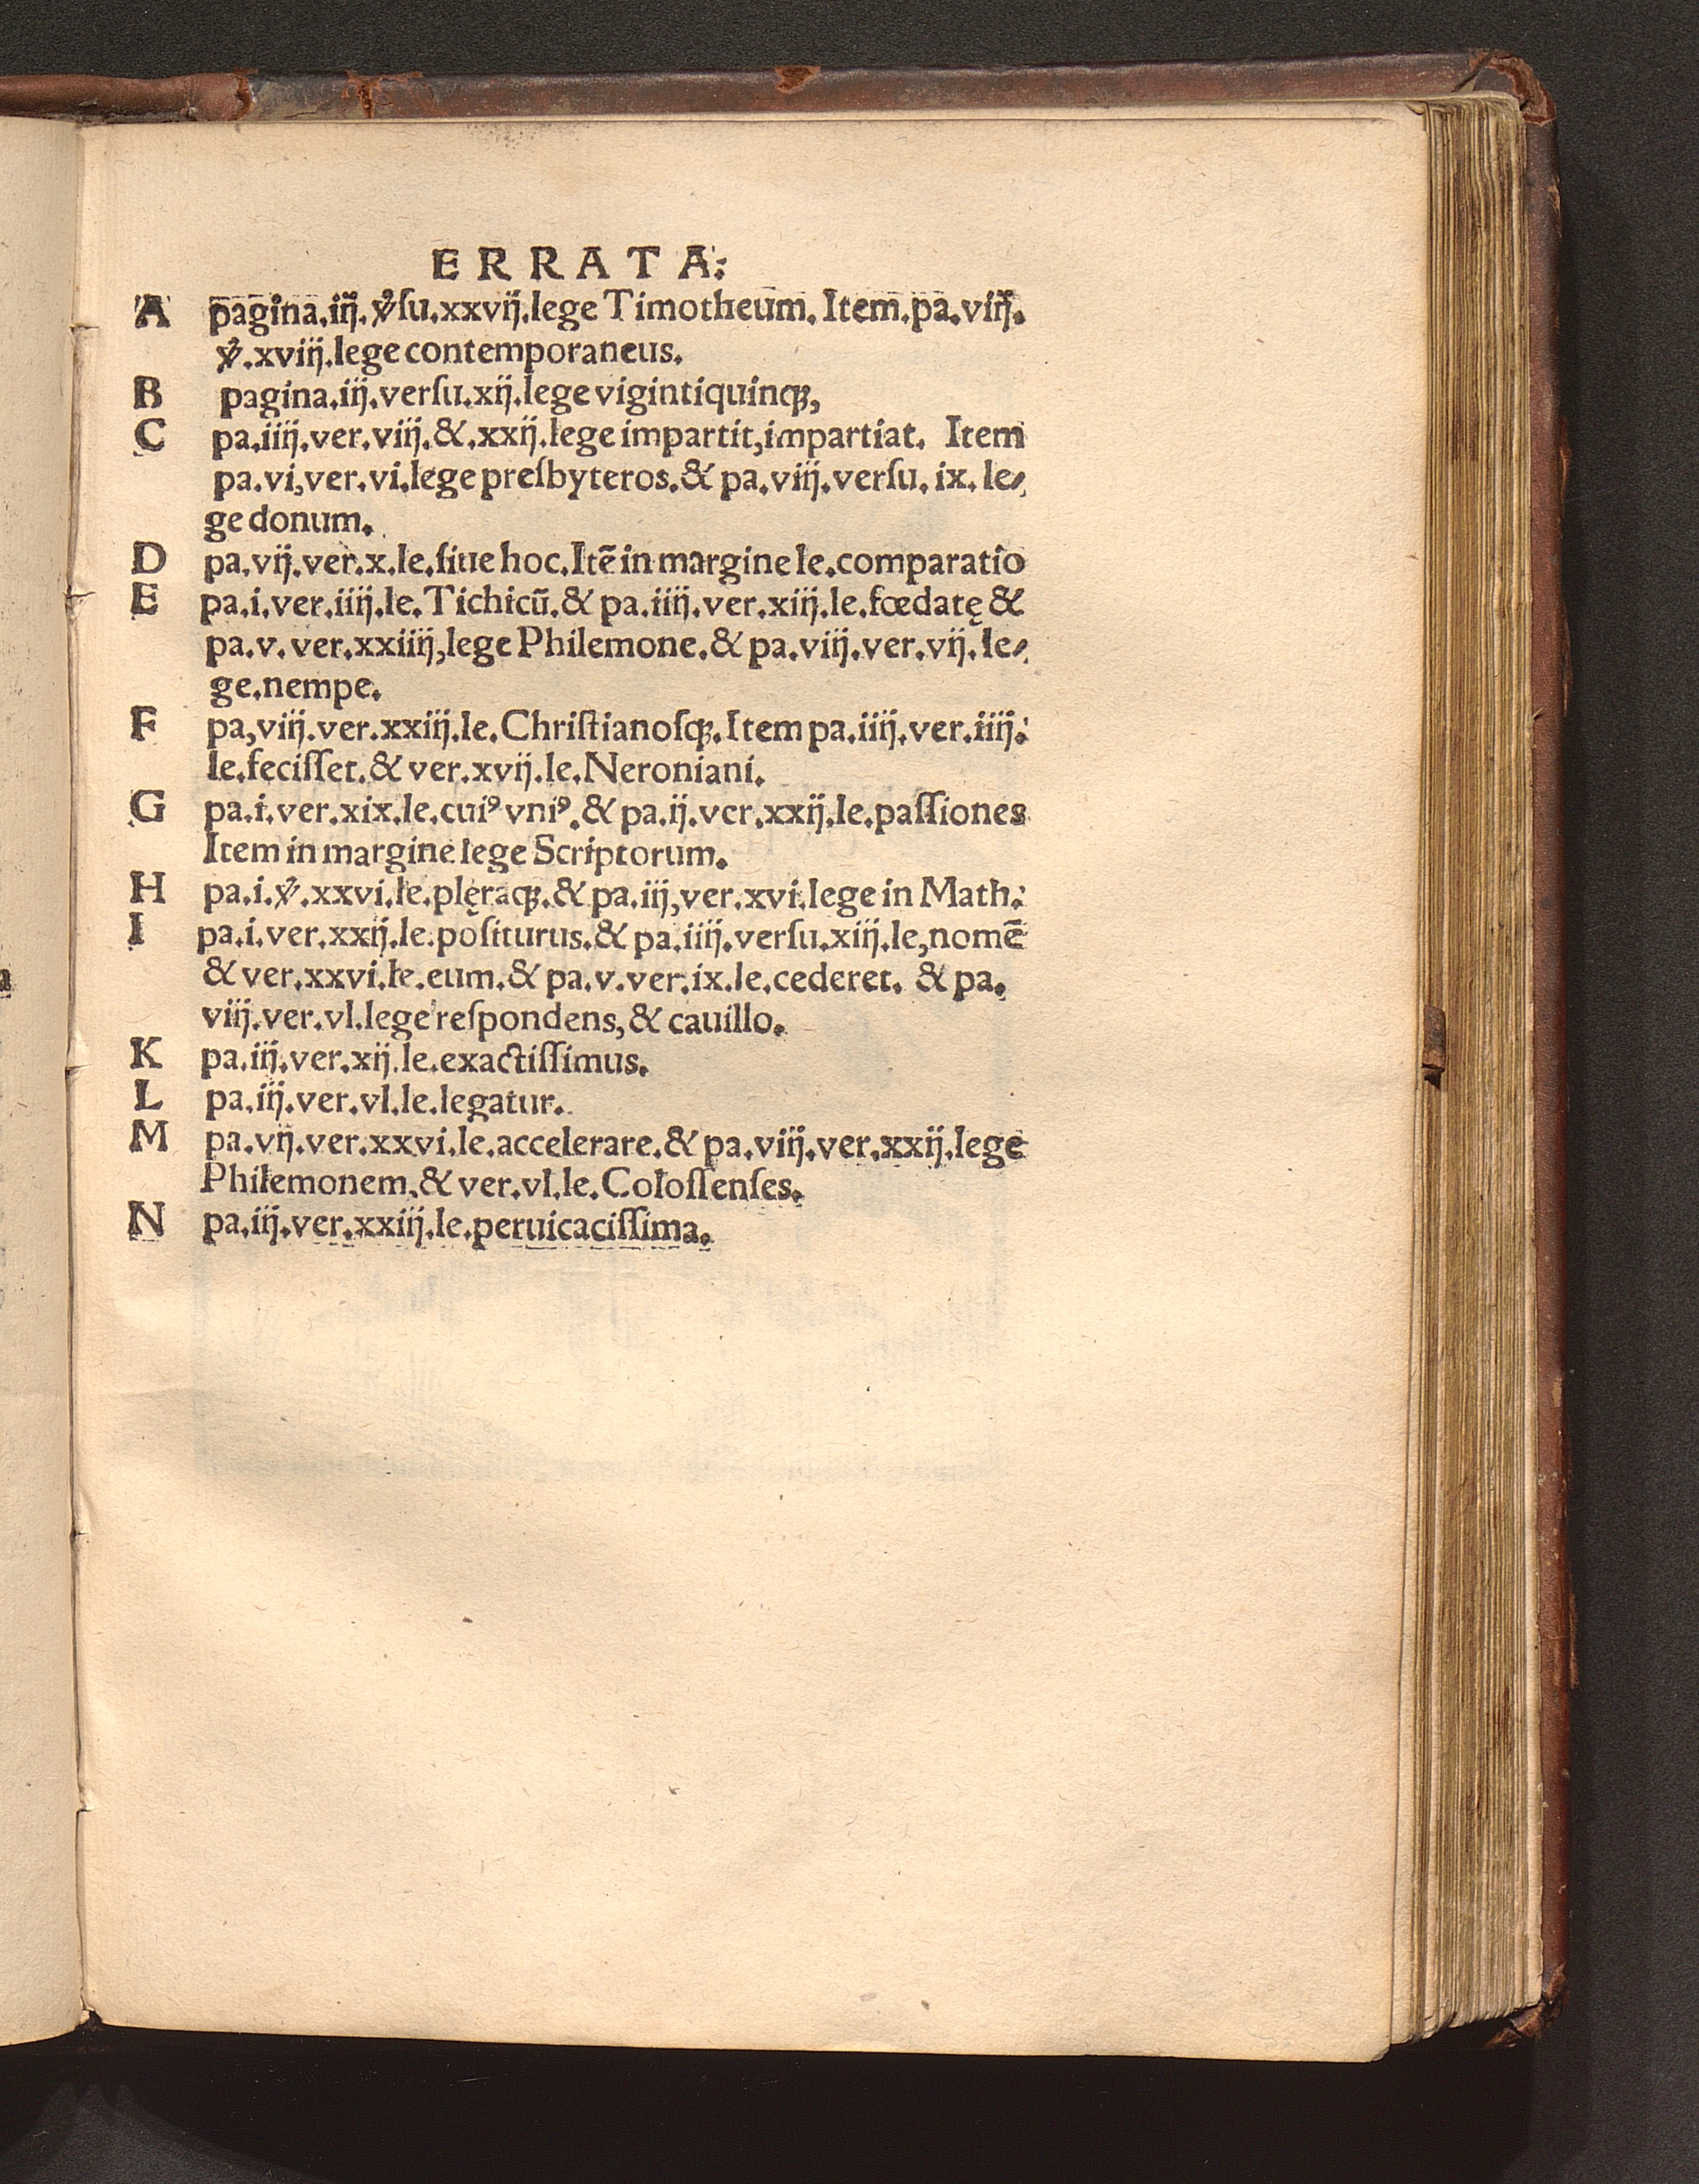 ERRATA:
A pagina.iij. v̾ſu.xxvij.lege Timotheum. Item.pa.viij.
v̾.xviij.lege contemporaneus.
B pagina.iij.verſu.xij.lege vigintiquinqꝫ,
C pa.iiij.ver.viij.&.xxij.lege impartit,impartiat. Item
pa.vi,ver.vi.lege preſbyteros.& pa.viij.verſu. ix. le⸗
ge donum.
D pa.vij.ver.x.le.ſiue hoc.Itē in margine le.comparatio
E pa.i.ver.iiij.le.Tichicū.& pa.iiij.ver.xiij.le.fœdatę &
pa.v. ver.xxiiij,lege Philemone.& pa.viij.ver.vij. le⸗
ge.nempe.
F pa,viij.ver.xxiij.le.Chriſtianoſqꝫ.Item pa.iiij.ver.iiij.
le.feciſſet.& ver.xvij.le.Neroniani.
G pa.i.ver.xix.le.cuiꝰ vniꝰ.& pa.ij.ver.xxij.le.paſſiones
Item in margine lege Scriptorum.
H pa.i.v̾.xxvi.le.plęraqꝫ.& pa.iij,ver.xvi.lege in Math.
I pa.i.ver.xxij.le.poſiturus.& pa.iiij.verſu.xiij.le,nomē
& ver.xxvi.le.eum.& pa.v.ver.ix.le.cederet. & pa.
viij.ver.vl.lege reſpondens,& cauillo.
K pa.iij.ver.xij.le.exactiſſimus.
L pa.iij.ver.vl.le.legatur.
M pa.vij.ver.xxvi.le.accelerare.& pa.viij.ver.xxij.lege
Philemonem.& ver.vl.le.Coloſſenſes.
N pa.iij.ver.xxiij.le.peruicaciſſima.